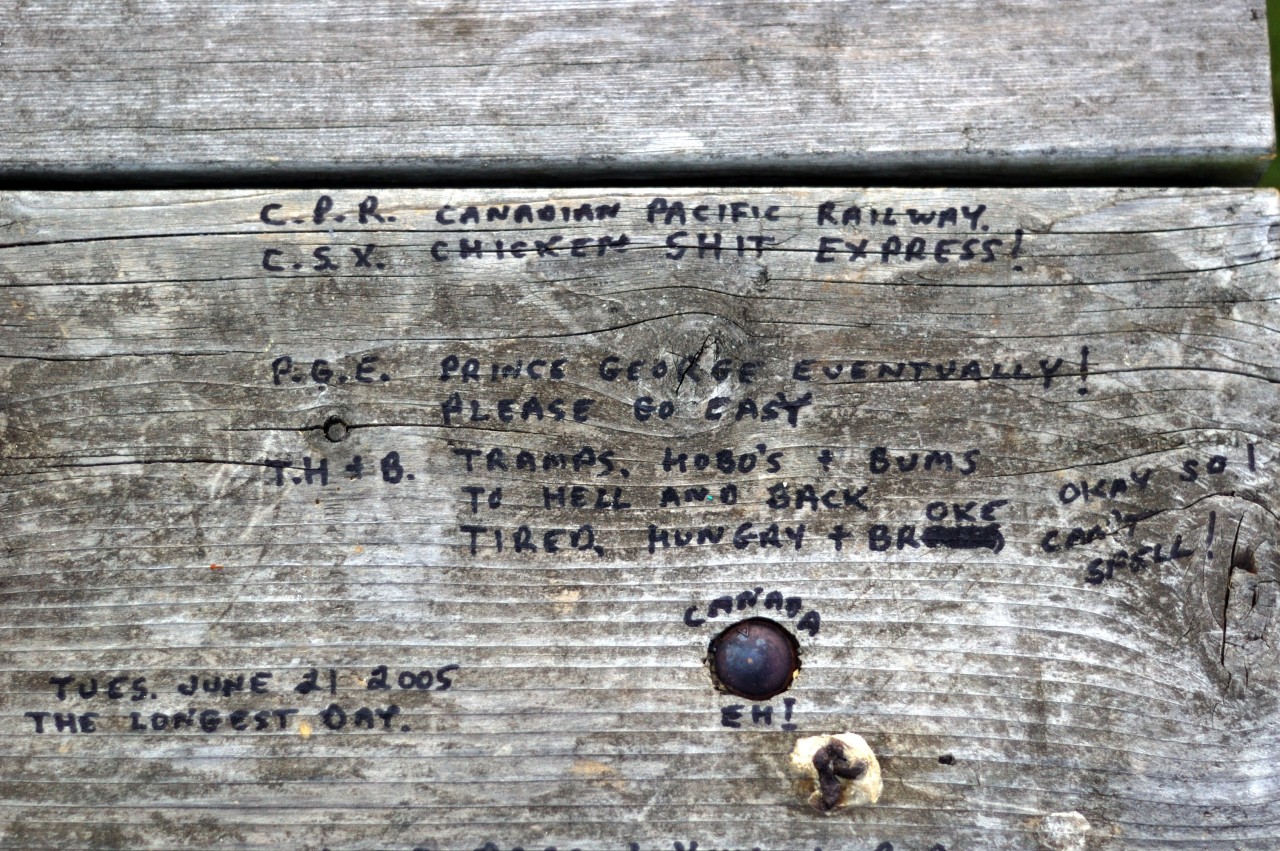 C.P.R. CANADIAN PACIFIC RAILWAY.
C.S.X. CHICKEN SHIT EXPRESS!
P.G.E. PRINCE GEORGE EVENTUALLY!
PLEASE GO EASY
T.H + B. TRAMPS, HOBO'S + BUMS
TO HELL AND BACK
TIRED, HUNGRY + BROKE
OKAY SO I
CAN'T
SPELL!
CANADA
EH!
TUES. JUNE 21 2005
THE LONGEST DAY.